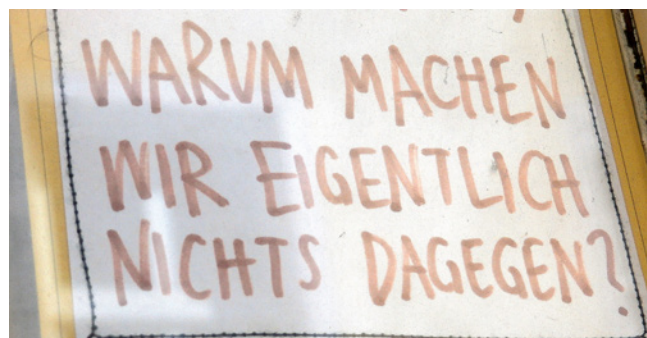 WARUM MACHEN
WIR EIGENTLICH
NICHTS DAGEGEN?